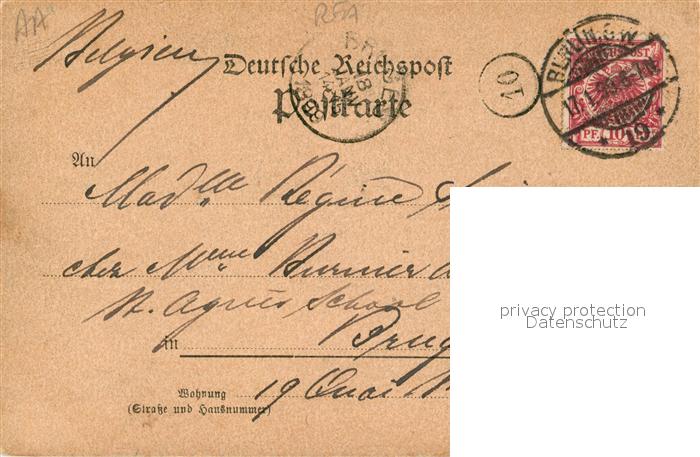 AA
RFA
Belgien
Deutsche Reichspost
Postkarte
BRUGGE
18
JANV
10
BERLIN, S.W.
19
PF. 10
An
Mad^lle Régine
chez M^me Burnier
St. Agnes School
in Brug
19 Quai
Wohnung
(Straße und Hausnummer)
privacy protection
Datenschutz